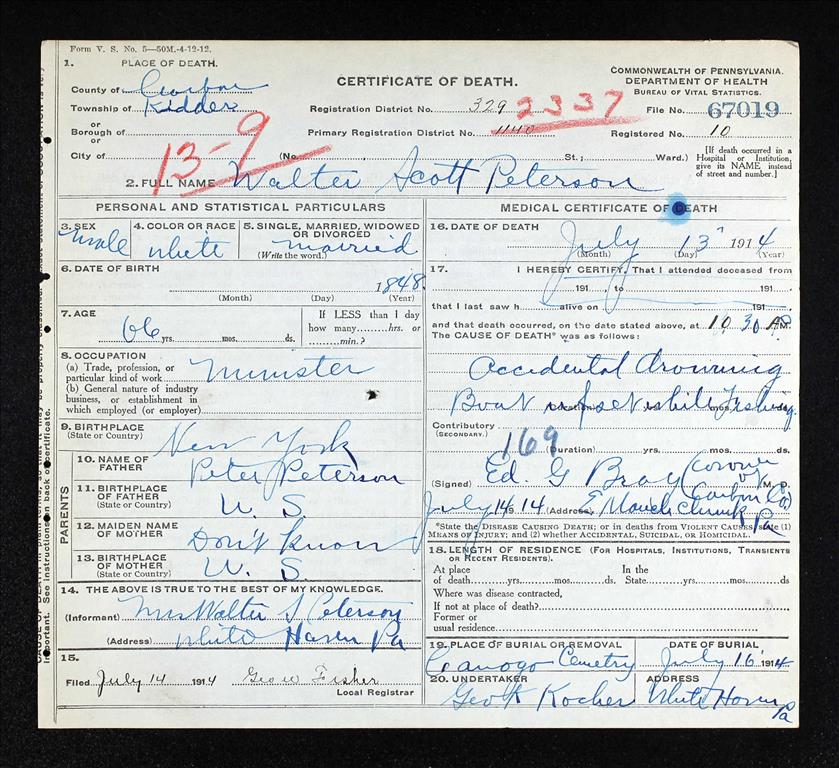 Form V. S. No. 5—50M.-4-12-12.
1. PLACE OF DEATH.
County of Carbon
Township of Kidder
or
Borough of
or
City of
CERTIFICATE OF DEATH.
Registration District No. 329 2337
Primary Registration District No. 1140
(No. , St.; Ward.)
13-9
COMMONWEALTH OF PENNSYLVANIA.
DEPARTMENT OF HEALTH
BUREAU OF VITAL STATISTICS.
File No. 67019
Registered No. 10
[If death occurred in a
Hospital or Institution,
give its NAME instead
of street and number.]
2. FULL NAME Walter Scott Peterson
PERSONAL AND STATISTICAL PARTICULARS
3. SEX
Male
4. COLOR OR RACE
White
5. SINGLE, MARRIED, WIDOWED
OR DIVORCED
(Write the word.) Married
6. DATE OF BIRTH
1848
(Month) (Day) (Year)
7. AGE
66 yrs. mos. ds.
If LESS than 1 day
how many hrs. or
min.?
8. OCCUPATION
(a) Trade, profession, or
particular kind of work Minister
(b) General nature of industry
business, or establishment in
which employed (or employer)
9. BIRTHPLACE
(State or Country) New York
PARENTS
10. NAME OF
FATHER Peter Peterson
11. BIRTHPLACE
OF FATHER
(State or Country) U. S.
12. MAIDEN NAME
OF MOTHER Don't know
13. BIRTHPLACE
OF MOTHER
(State or Country) U. S.
14. THE ABOVE IS TRUE TO THE BEST OF MY KNOWLEDGE.
(Informant) Mrs Walter S Peterson
(Address) White Haven Pa
15.
Filed July 14 1914 Geo W Fisher
Local Registrar
MEDICAL CERTIFICATE OF DEATH
16. DATE OF DEATH
July 13" 1914
(Month) (Day) (Year)
17. I HEREBY CERTIFY, That I attended deceased from
191 , to 191
that I last saw h alive on 191
and that death occurred, on the date stated above, at 10.30 A M.
The CAUSE OF DEATH* was as follows:
Accidental Drowning
Boat upset while Fishing
(Duration) yrs. mos. ds.
Contributory
(SECONDARY.)
169 (Duration) yrs. mos. ds.
(Signed) Ed. G Bray (Coroner M. D.
Carbon Co)
July 14 1914 (Address) E Mauch Chunk Pa
*State the DISEASE CAUSING DEATH; or in deaths from VIOLENT CAUSES, state (1)
MEANS OF INJURY; and (2) whether ACCIDENTAL, SUICIDAL, OR HOMICIDAL.
18. LENGTH OF RESIDENCE (FOR HOSPITALS, INSTITUTIONS, TRANSIENTS
OR RECENT RESIDENTS).
At place In the
of death yrs. mos. ds. State yrs. mos. ds
Where was disease contracted,
If not at place of death?
Former or
usual residence
19. PLACE OF BURIAL OR REMOVAL
Cemetry
DATE OF BURIAL
July 16 1914
20. UNDERTAKER
Kocher
ADDRESS
White Haven Pa
important. See instructions on back of certificate.